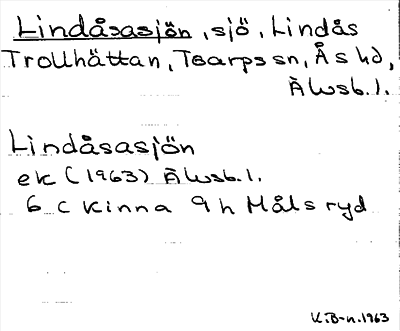 Lindåsasjön, sjö, Lindås
Trollhättan, Toarps sn, Ås hd,
Älvsb. l.
Lindåsasjön
ek (1963) Älvsb. l.
6 C Kinna 9 h Målsryd
K.B-n. 1963